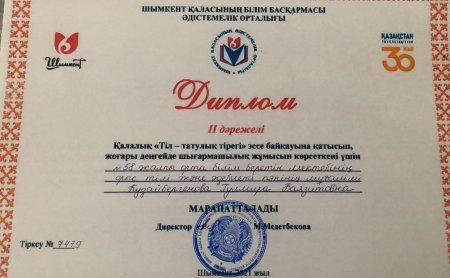 ШЫМКЕНТ ҚАЛАСЫНЫҢ БІЛІМ БАСҚАРМАСЫ
ӘДІСТЕМЕЛІК ОРТАЛЫҒЫ
Шымкент
ҚАЗАҚСТАН
30
Диплом
II дәрежелі
Қалалық «Тіл – татулық тірегі» эссе байқауына қатысып,
жоғары деңгейде шығармашылық жұмысын көрсеткені үшін
№58 жалпы орта білім беретін мектебінің
орыс тілі және әдебиеті пәнінің мұғалімі
Кудайбергенова Гулмира
МАРАПАТТАЛАДЫ
Директор М.Медетбекова
Тіркеу № 7479
Шымкент 2021 жыл